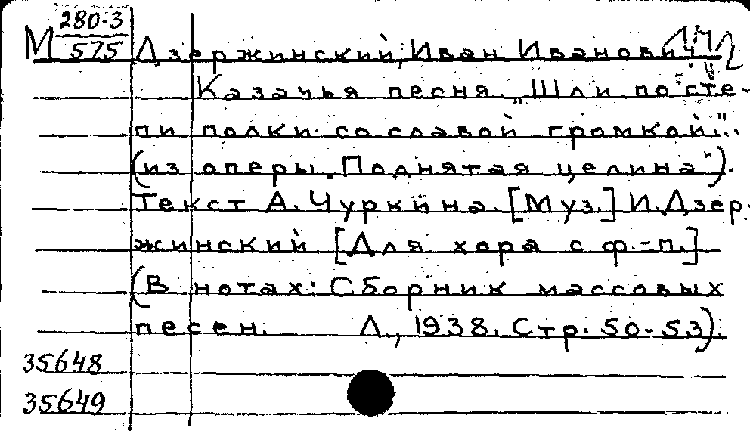 М 280-3
575 Дзержинский, Иван Иванович
Казачья песня. "Шли по сте-
пи полки со славой громкой..."
(из оперы "Поднятая целина").
Текст А. Чуркина. [Муз.] И. Дзер-
жинский [Для хора с ф.-п.]
(В нотах: Сборник массовых
песен. Л., 1938. Стр. 50-53).
35648
35649